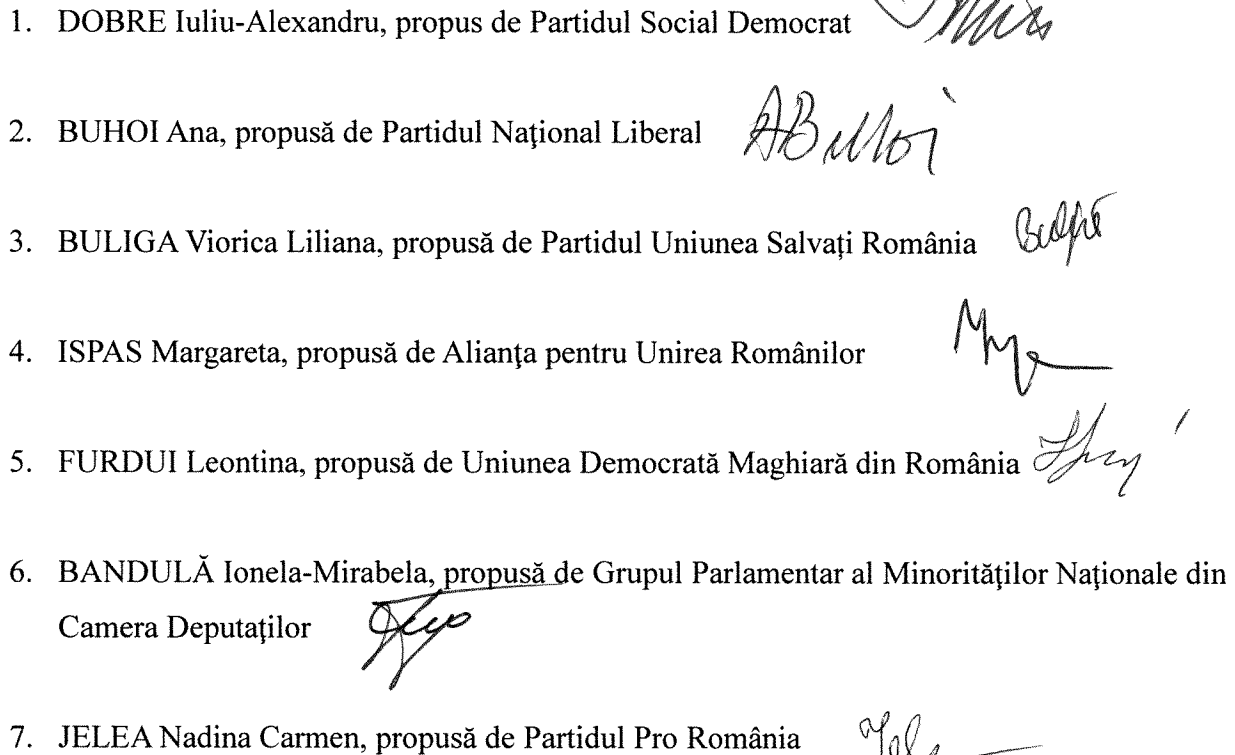 1. DOBRE Iuliu-Alexandru, propus de Partidul Social Democrat
2. BUHOI Ana, propusă de Partidul Naţional Liberal
ABuhoi
3. BULIGA Viorica Liliana, propusă de Partidul Uniunea Salvaţi România
4. ISPAS Margareta, propusă de Alianţa pentru Unirea Românilor
5. FURDUI Leontina, propusă de Uniunea Democrată Maghiară din România
6. BANDULĂ Ionela-Mirabela, propusă de Grupul Parlamentar al Minorităţilor Naţionale din
Camera Deputaţilor
7. JELEA Nadina Carmen, propusă de Partidul Pro România